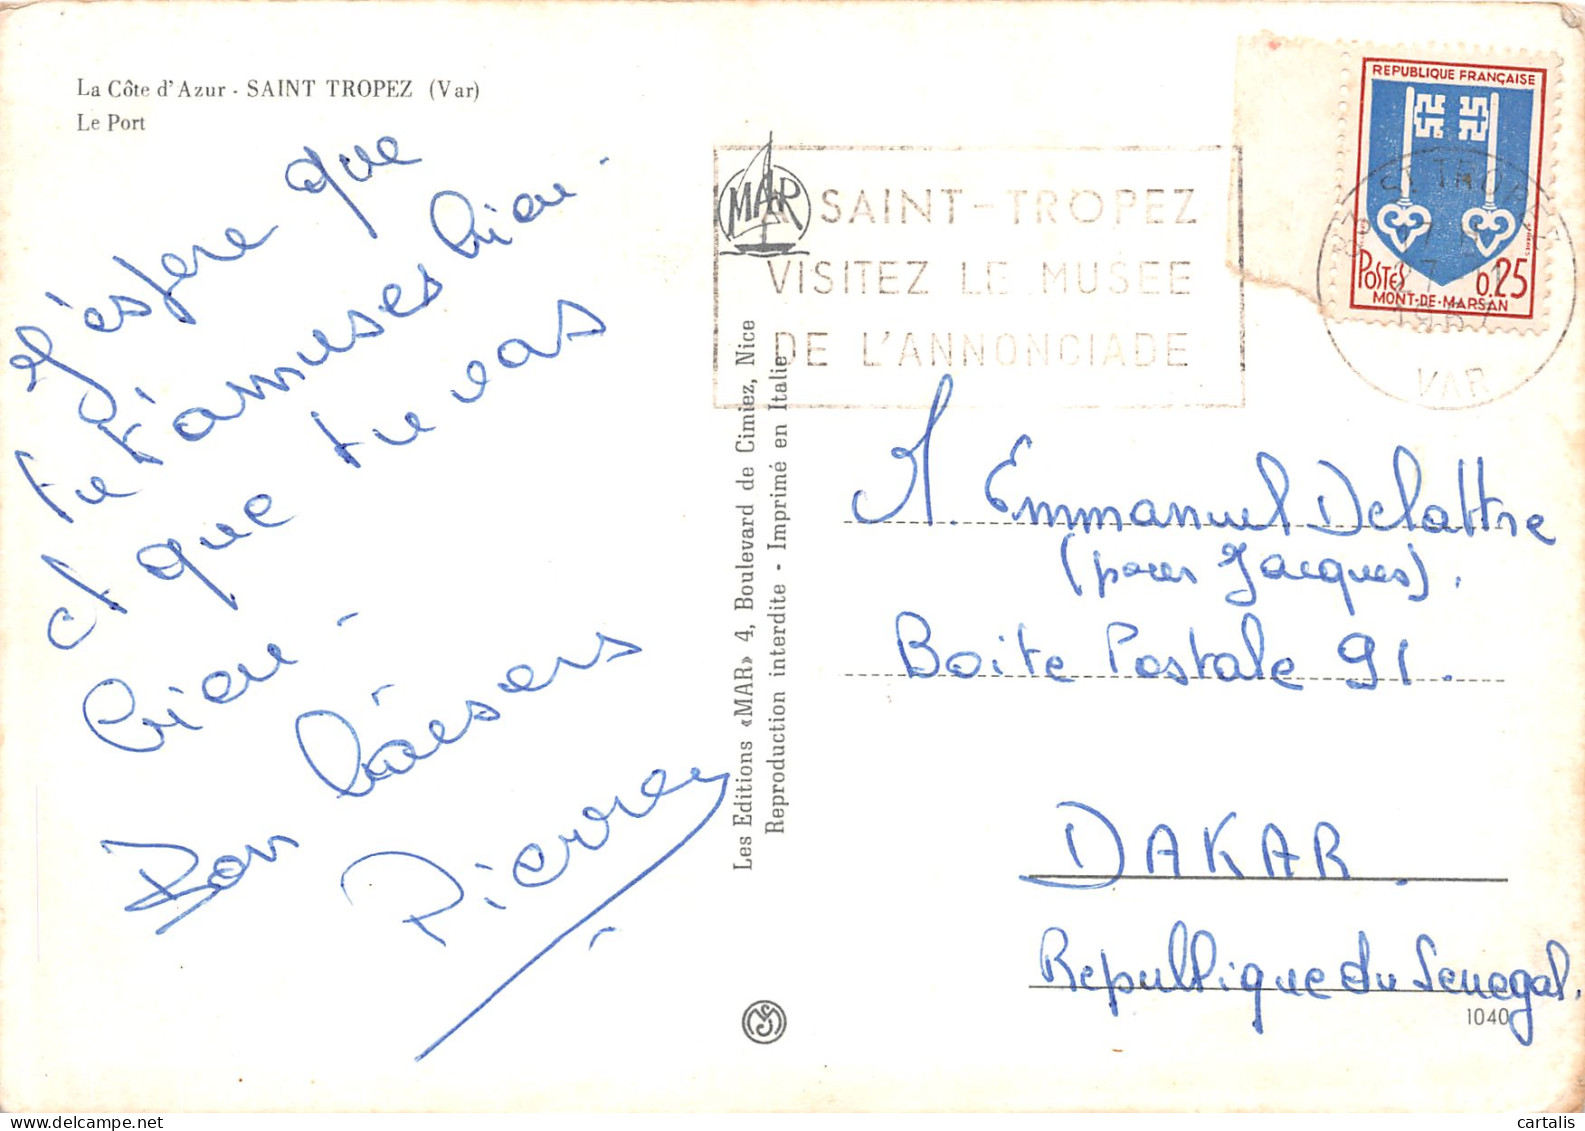 La Côte d'Azur - SAINT TROPEZ (Var)
Le Port
J'espere que
tu t'amuses bien -
et que tu vas
bien -
Bon baisers
Pierre
MAR
A SAINT-TROPEZ
VISITEZ LE MUSEE
DE L'ANNONCIADE
REPUBLIQUE FRANÇAISE
POSTES 0,25
MONT-DE-MARSAN
ST TROPEZ
VAR
Les Editions «MAR» 4, Boulevard de Cimiez, Nice
Reproduction interdite - Imprimé en Italie
A. Emmanuel Delattre
(pour Jacques).
Boite Postale 91.
DAKAR.
Republique du Senegal.
1040
cartalis